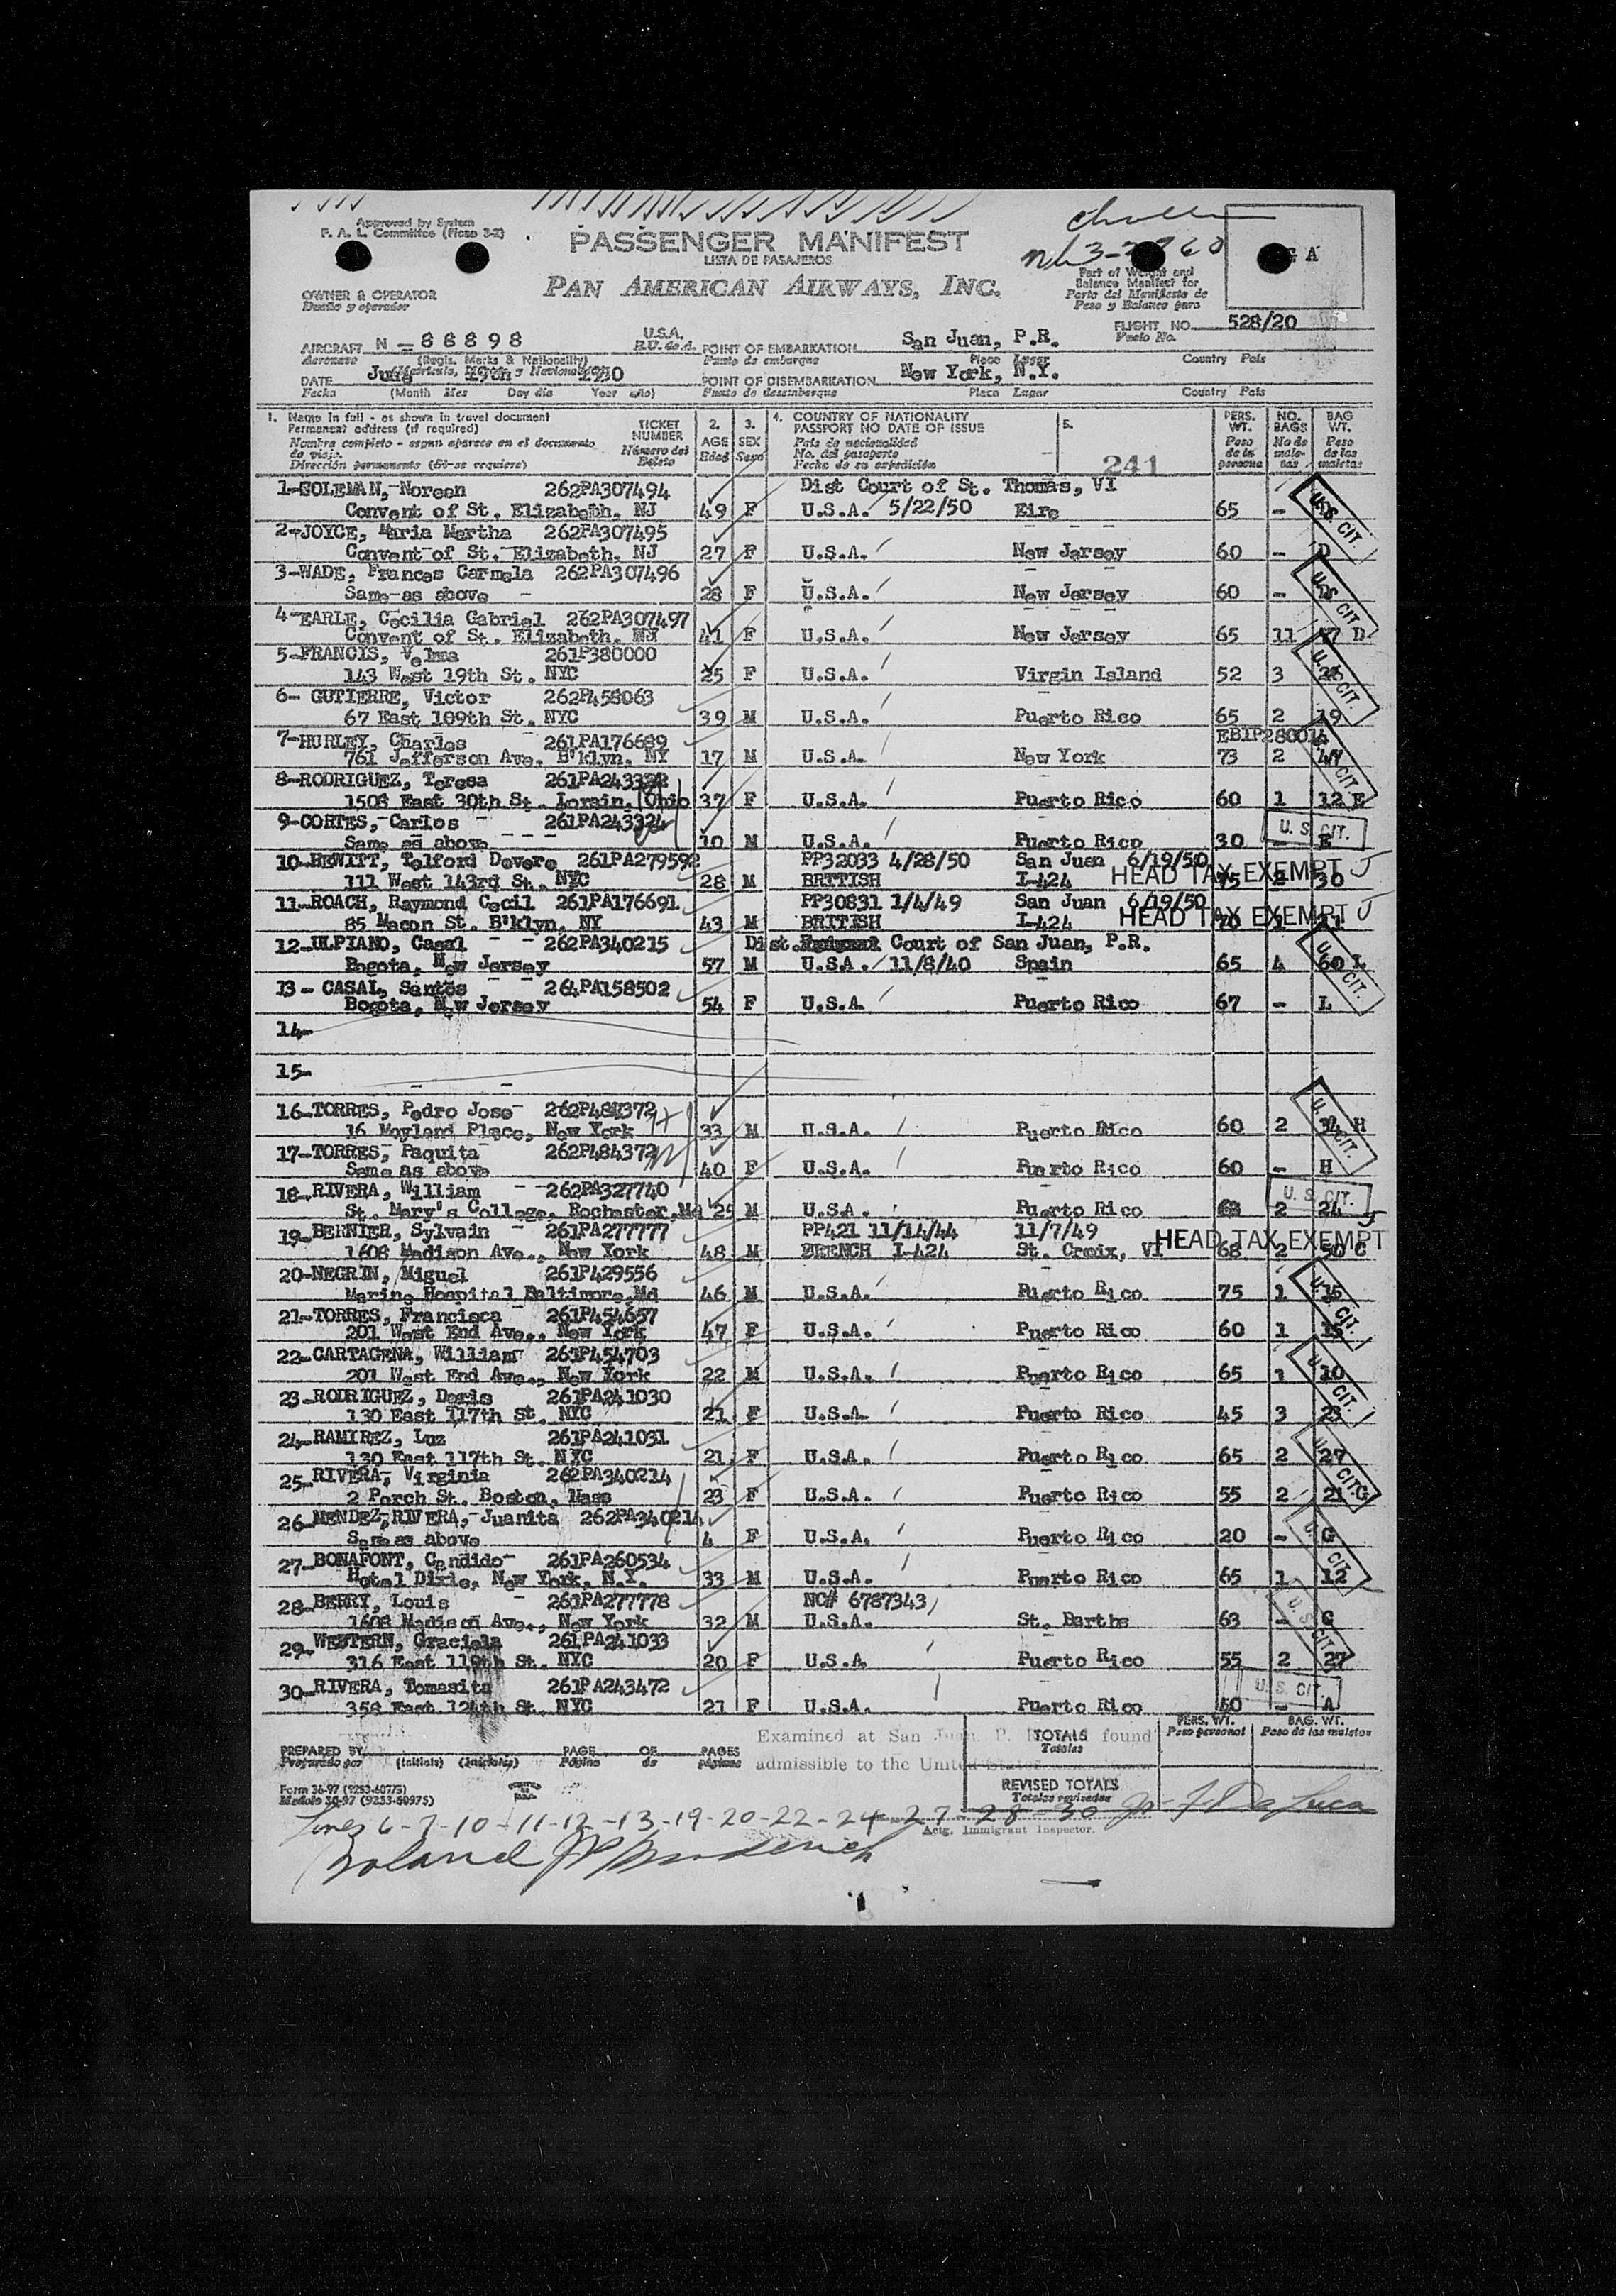 Approved by System
F. A. L. Committee (Fiozo 3-2)
PASSENGER MANIFEST
LISTA DE PASAJEROS
PAN AMERICAN AIRWAYS, INC.
G A
Part of Weight and
Balance Manifest for
Parte del Manifiesto de
Peso y Balance para
OWNER & OPERATOR
Dueño y operador
FLIGHT NO. 528/20
Vuelo No.
AIRCRAFT N - 88898 U.S.A. POINT OF EMBARKATION San Juan, P.R.
Aeronave (Regis. Marks & Nationality) E.U. de A. Punto de embarque Place Lugar Country Pais
DATE June 19th 1950 POINT OF DISEMBARKATION New York, N.Y.
Fecha (Month Mes Day dia Year año) Punto de desembarque Place Lugar Country Pais
1. Name in full - as shown in travel document
Permanent address (if required)
Nombre completo - segun aparece en el documento
de viaje.
Dirección permanente (Si-se requiere)
TICKET NUMBER Número del Boleto
2. AGE Edad
3. SEX Sexo
4. COUNTRY OF NATIONALITY
PASSPORT NO DATE OF ISSUE
Pais de nacionalidad
No. del pasaporte
Fecha de su expedición
5.
241
PERS. WT. Peso de la persona
NO. BAGS No de maletas
BAG WT. Peso de las maletas
1-COLEMAN, Noreen 262PA307494 Dist Court of St. Thomas, VI
Convent of St. Elizabeth, NJ 49 F U.S.A. 5/22/50 Eire 65 - U.S. CIT.
2-JOYCE, Maria Martha 262PA307495
Convent of St. Elizabeth, NJ 27 F U.S.A. New Jersey 60 - D
3-WADE, Frances Carmela 262PA307496
Same as above 28 F U.S.A. New Jersey 60 - U.S. CIT.
4-EARLE, Cecilia Gabriel 262PA307497
Convent of St. Elizabeth, NJ 41 F U.S.A. New Jersey 65 11 D
5-FRANCIS, Velma 261P380000
143 West 19th St. NYC 25 F U.S.A. Virgin Island 52 3 U.S. CIT.
6- GUTIERRE, Victor 262P458063
67 East 109th St. NYC 39 M U.S.A. Puerto Rico 65 2 19
7-HURLEY, Charles 261PA176689 EB1P280014
761 Jefferson Ave. B'klyn, NY 17 M U.S.A. New York 73 2 U.S. CIT.
8-RODRIGUEZ, Teresa
1508 East 30th St. Lorain, Ohio 37 F U.S.A. Puerto Rico 60 1 12 E
9-CORTES, Carlos 261PA243324
Same as above 10 M U.S.A. Puerto Rico 30 - E U.S. CIT.
10-HEWITT, Telford Devere 261PA279592 PP32033 4/28/50 San Juan 6/19/50
111 West 143rd St. NYC 28 M BRITISH I-424 75 2 30 HEAD TAX EXEMPT
11-ROACH, Raymond Cecil 261PA176691 PP30831 1/4/49 San Juan 6/19/50
85 Macon St. B'klyn, NY 43 M BRITISH I-424 70 1 21 HEAD TAX EXEMPT
12-ULPIANO, Casal 262PA340215 Dist. Court of San Juan, P.R.
Bogota, New Jersey 57 M U.S.A. 11/8/40 Spain 65 4 60 L U.S. CIT.
13- CASAL, Santos 264PA158502
Bogota, New Jersey 54 F U.S.A. Puerto Rico 67 - L
14-
15-
16-TORRES, Pedro Jose 262P484372
16 Moyland Place, New York 33 M U.S.A. Puerto Rico 60 2 34 H U.S. CIT.
17-TORRES, Paquita 262P484372
Same as above 40 F U.S.A. Puerto Rico 60 - H
18-RIVERA, William 262PA327740
St. Mary's College, Rochester, Md 25 M U.S.A. Puerto Rico 63 2 24 U.S. CIT.
19-BERNIER, Sylvain 261PA277777 PP421 11/14/44 11/7/49
1608 Madison Ave., New York 48 M FRENCH I-424 St. Croix, VI 68 2 50 C HEAD TAX EXEMPT
20-NEGRIN, Miguel 261P429556
Marine Hospital Baltimore, Md 46 M U.S.A. Puerto Rico 75 1 15 U.S. CIT.
21-TORRES, Francisca 261P454657
201 West End Ave., New York 47 F U.S.A. Puerto Rico 60 1 15
22-CARTAGENA, William 261P454703
201 West End Ave., New York 22 M U.S.A. Puerto Rico 65 1 10 U.S. CIT.
23-RODRIGUEZ, Doris 261PA241030
130 East 117th St. NYC 21 F U.S.A. Puerto Rico 45 3 23
24-RAMIREZ, Luz 261PA241031
130 East 117th St. NYC 21 F U.S.A. Puerto Rico 65 2 27 U.S. CIT.
25-RIVERA, Virginia 262PA340214
2 Porch St. Boston, Mass 23 F U.S.A. Puerto Rico 55 2 21 G
26-MENDEZ, RIVERA, Juanita 262PA340214
Same as above 4 F U.S.A. Puerto Rico 20 - G U.S. CIT.
27-BONAFONT, Candido 261PA260534
Hotel Dixie, New York, N.Y. 33 M U.S.A. Puerto Rico 65 1 12
28-BERRY, Louis 261PA277778 NC# 6787343
1608 Madison Ave., New York 32 M U.S.A. St. Barths 63 - C U.S. CIT.
29-WESTERN, Graciela 261PA241033
316 East 119th St. NYC 20 F U.S.A. Puerto Rico 55 2 27
30-RIVERA, Tomasita 261PA243472
358 East 124th St. NYC 21 F U.S.A. Puerto Rico 50 - A U.S. CIT.
Examined at San Juan P. R. found
admissible to the United States
TOTALS
Totales
PERS. WT. Peso personal
BAG. WT. Peso de las maletas
PREPARED BY (Initials) PAGE OF PAGES
Preparado por (Iniciales) Página de páginas
REVISED TOTALS
Totales revisados
Form 36-97 (9253-60975)
Modelo 36-97 (9253-60975)
Lines 6-7-10-11-12-13-19-20-22-24-27-28-30
Actg. Immigrant Inspector.